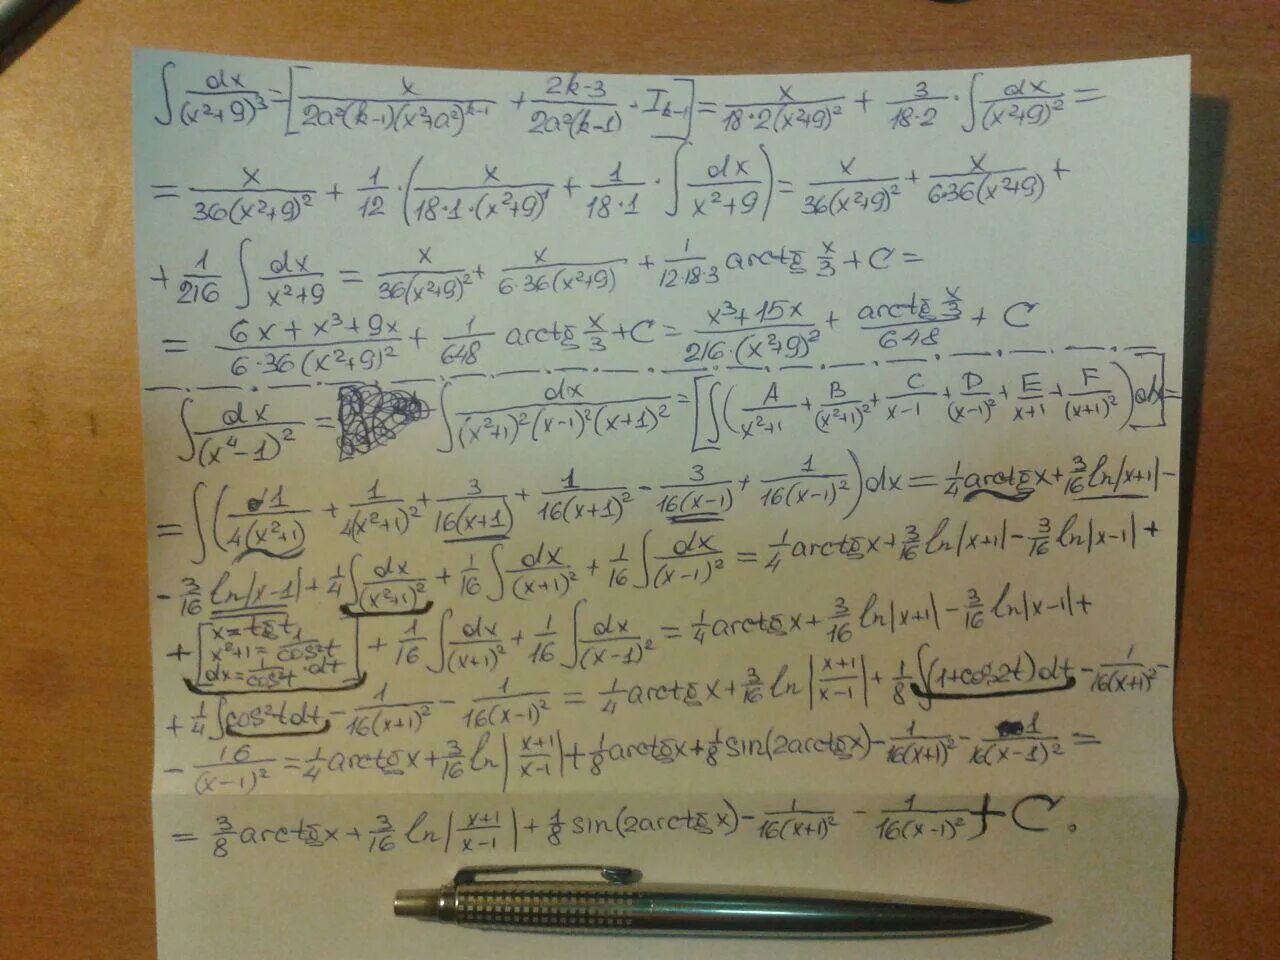 ∫ dx/(x²+9)³ = [x/(2a²(k-1)(x²+a²)^(k-1)) + (2k-3)/(2a²(k-1)) · I_(k-1)] = x/(18·2(x²+9)²) + 3/(18·2) · ∫ dx/(x²+9)² =
= x/(36(x²+9)²) + 1/12 · (x/(18·1·(x²+9)¹) + 1/(18·1) · ∫ dx/(x²+9)) = x/(36(x²+9)²) + x/(6·36(x²+9)) +
+ 1/216 ∫ dx/(x²+9) = x/(36(x²+9)²) + x/(6·36(x²+9)) + 1/(12·18·3) arctg x/3 + C =
= (6x + x³ + 9x)/(6·36(x²+9)²) + 1/648 arctg x/3 + C = (x³+15x)/(216·(x²+9)²) + (arctg x/3)/648 + C
∫ dx/(x⁴-1)² = ∫ dx/((x²+1)²(x-1)²(x+1)²) = [∫(A/(x²+1) + B/(x²+1)² + C/(x-1) + D/(x-1)² + E/(x+1) + F/(x+1)²)dx] =
= ∫(1/(4(x²+1)) + 1/(4(x²+1)²) + 3/(16(x+1)) + 1/(16(x+1)²) - 3/(16(x-1)) + 1/(16(x-1)²))dx = 1/4 arctg x + 3/16 ln|x+1| -
- 3/16 ln|x-1| + 1/4 ∫ dx/(x²+1)² + 1/16 ∫ dx/(x+1)² + 1/16 ∫ dx/(x-1)² = 1/4 arctg x + 3/16 ln|x+1| - 3/16 ln|x-1| +
+ [x = tg t, x²+1 = 1/cos²t, dx = 1/cos²t · dt] + 1/16 ∫ dx/(x+1)² + 1/16 ∫ dx/(x-1)² = 1/4 arctg x + 3/16 ln|x+1| - 3/16 ln|x-1| +
+ 1/4 ∫ cos²t dt - 1/(16(x+1)²) - 1/(16(x-1)²) = 1/4 arctg x + 3/16 ln|(x+1)/(x-1)| + 1/8 ∫(1+cos2t)dt - 1/(16(x+1)²) -
- 16/(x-1)² = 1/4 arctg x + 3/16 ln|(x+1)/(x-1)| + 1/8 arctg x + 1/8 sin(2arctg x) - 1/(16(x+1)²) - 1/(16(x-1)²) =
= 3/8 arctg x + 3/16 ln|(x+1)/(x-1)| + 1/8 sin(2arctg x) - 1/(16(x+1)²) - 1/(16(x-1)²) + C.